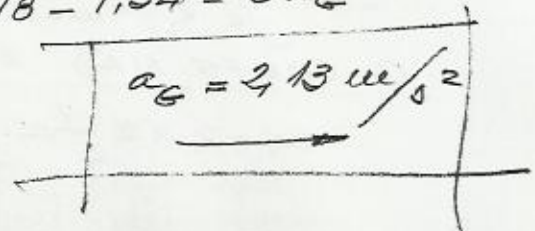 8 - 1,54 = 3 a_G
a_G = 2,13 m/s²